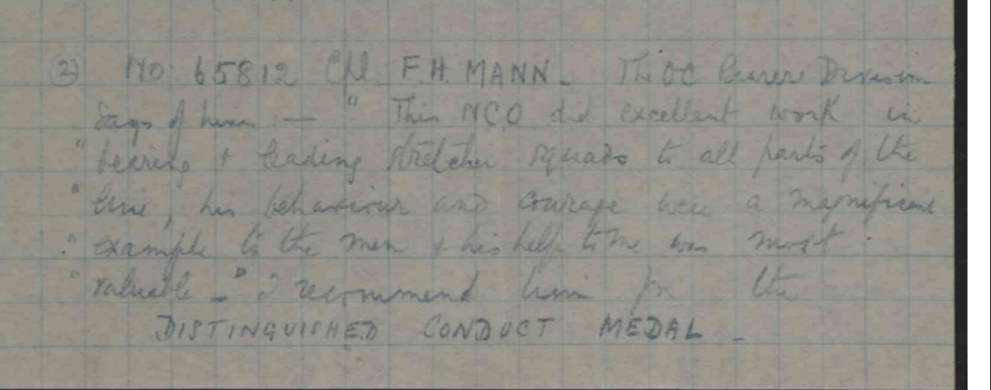 2) No. 65812 Cpl F.H. MANN - The OC Bearer Division
Says of him :- "This NCO did excellent work in
" bearing + leading stretcher squads to all parts of the
" line, his behaviour and courage were a magnificent
" example to the men + his help to me was most
" valuable -" I recommend him for the
DISTINGUISHED CONDUCT MEDAL -